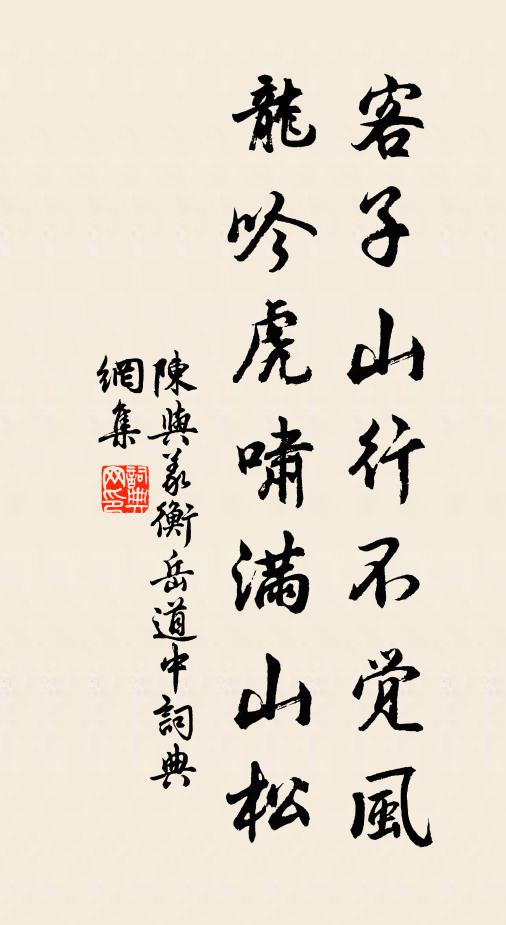 客子山行不觉風
龍吟虎嘯满山松
陳與義衡岳道中詞典
網集
詞典
网印